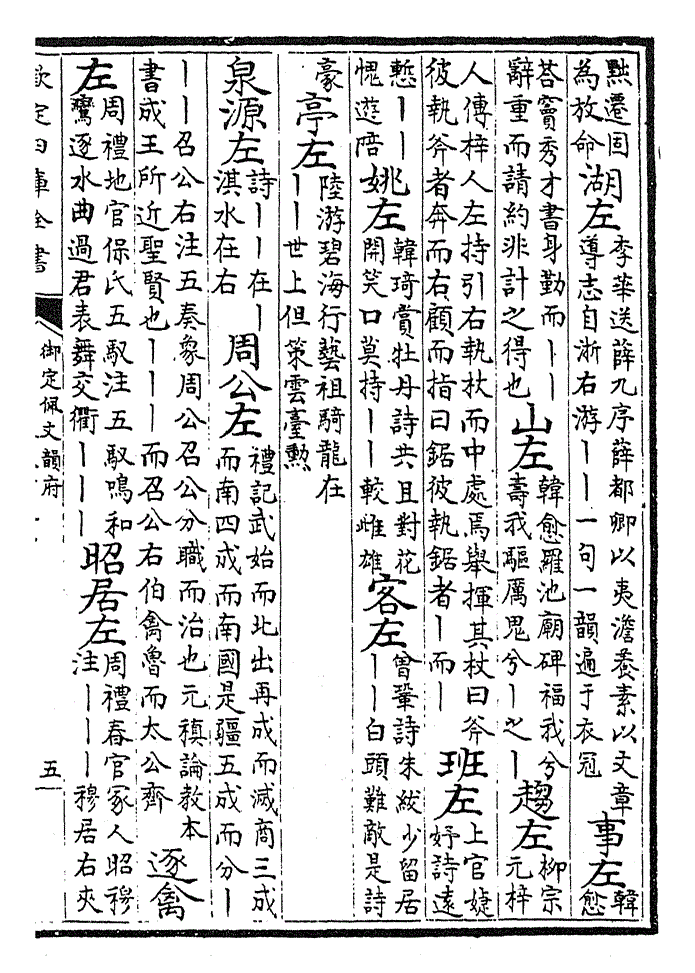 黜遷固
為放命
湖左
李華送薛九序薛都卿以夷澹養素以文章
導志自浙右游丨丨一句一韻遍于衣冠
事左
韓
愈
荅竇秀才書身勤而丨丨
辭重而請約非計之得也
山左
韓愈羅池廟碑福我兮
壽我驅厲鬼兮丨之丨
趨左
柳宗
元梓
人傳梓人左持引右執杖而中處焉舉揮其杖曰斧
彼執斧者奔而右顧而指曰鋸彼執鋸者丨而丨
班左
上官婕
妤詩遠
慙丨丨
愧遊陪
姚左
韓琦賞牡丹詩共且對花
開笑口莫持丨丨較雌雄
客左
曾鞏詩朱紱少留居
丨丨白頭難敵是詩
豪
亭左
陸游碧海行藝祖騎龍在
丨丨世上但策雲臺勲
泉源左
詩丨丨在丨
淇水在右
周公左
禮記武始而北出再成而滅商三成
而南四成而南國是疆五成而分丨
丨丨召公右注五奏象周公召公分職而治也元稹論教本
書成王所近聖賢也丨丨丨而召公右伯禽魯而太公齊
逐禽
左
周禮地官保氏五馭注五馭鳴和
鸞逐水曲過君表舞交衢丨丨丨
昭居左
周禮春官冢人昭穆
注丨丨丨穆居右夾
欽定四庫全書
御定佩文韻府
五